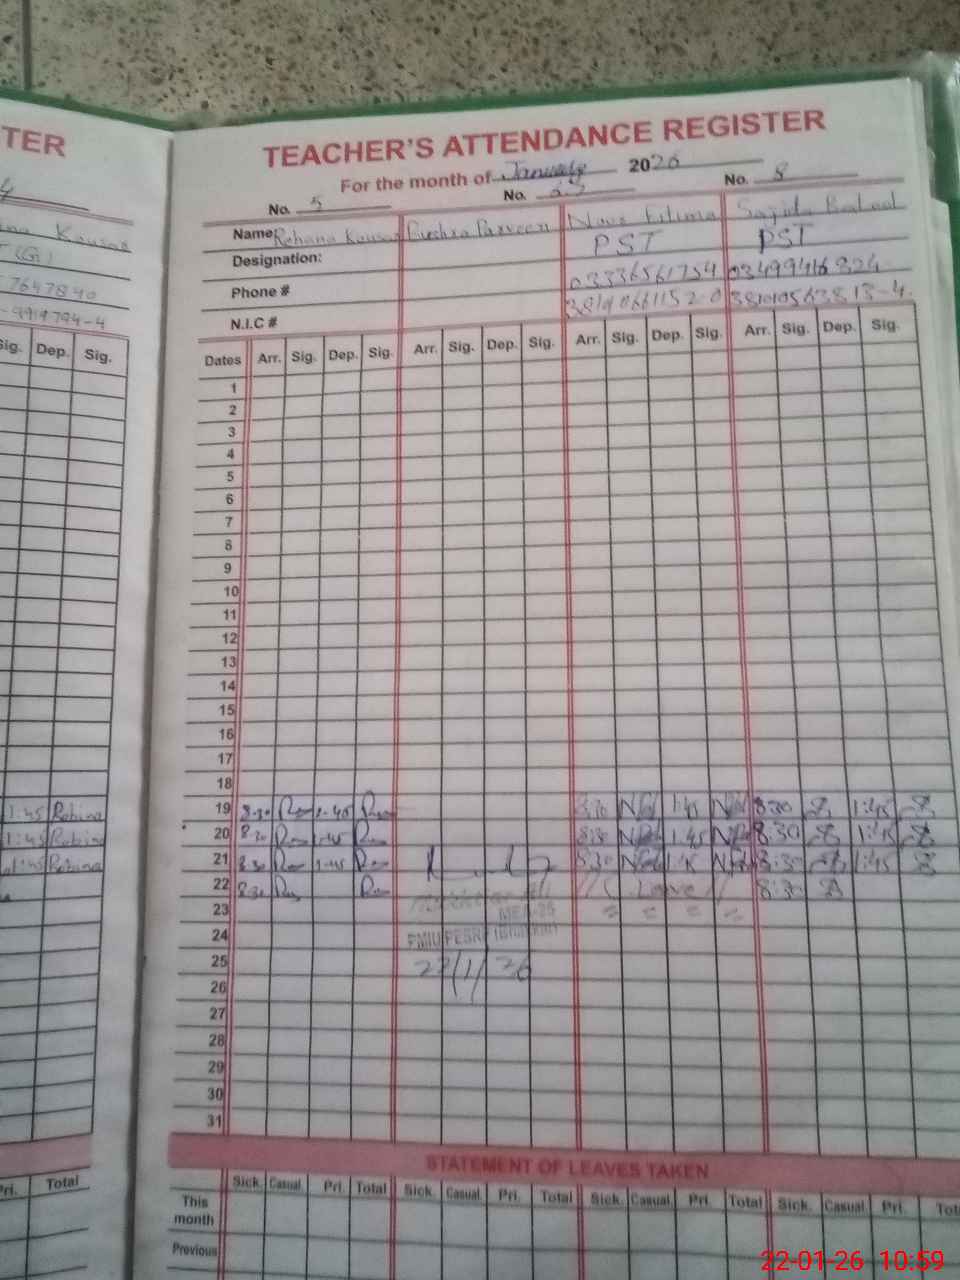 TER
TEACHER'S ATTENDANCE REGISTER
For the month of January 2026
No. 5 No. No. 8
Name: Rehana Kousar Bushra Parveen Nova Fatima Sajida
Kousar
Designation: PST PST
T(G)
Phone # 03336561754 03499416824
7647840
N.I.C # 38101 0563813-4
-9919794-4
Sig. Dep. Sig.
Dates Arr. Sig. Dep. Sig. Arr. Sig. Dep. Sig. Arr. Sig. Dep. Sig. Arr. Sig. Dep. Sig.
1
2
3
4
5
6
7
8
9
10
11
12
13
14
15
16
17
18
1:45 Robina
19 8:30 1:45 8:30 1:45 8:30 1:45
1:45 Robina
20 8:30 1:45 8:30 1:45 8:30 1:45
1:45 Robina
21 8:30 1:45 8:30 1:45 8:30 1:45
22 8:30 Leave 8:30
23
MEA-25
24 PMIU PESRP (Bhakkar)
25 22/1/26
26
27
28
29
30
31
STATEMENT OF LEAVES TAKEN
Pri. Total
Sick. Casual. Pri. Total Sick. Casual. Pri. Total Sick. Casual. Pri. Total Sick. Casual. Pri.
This month
Previous
22-01-26 10:59